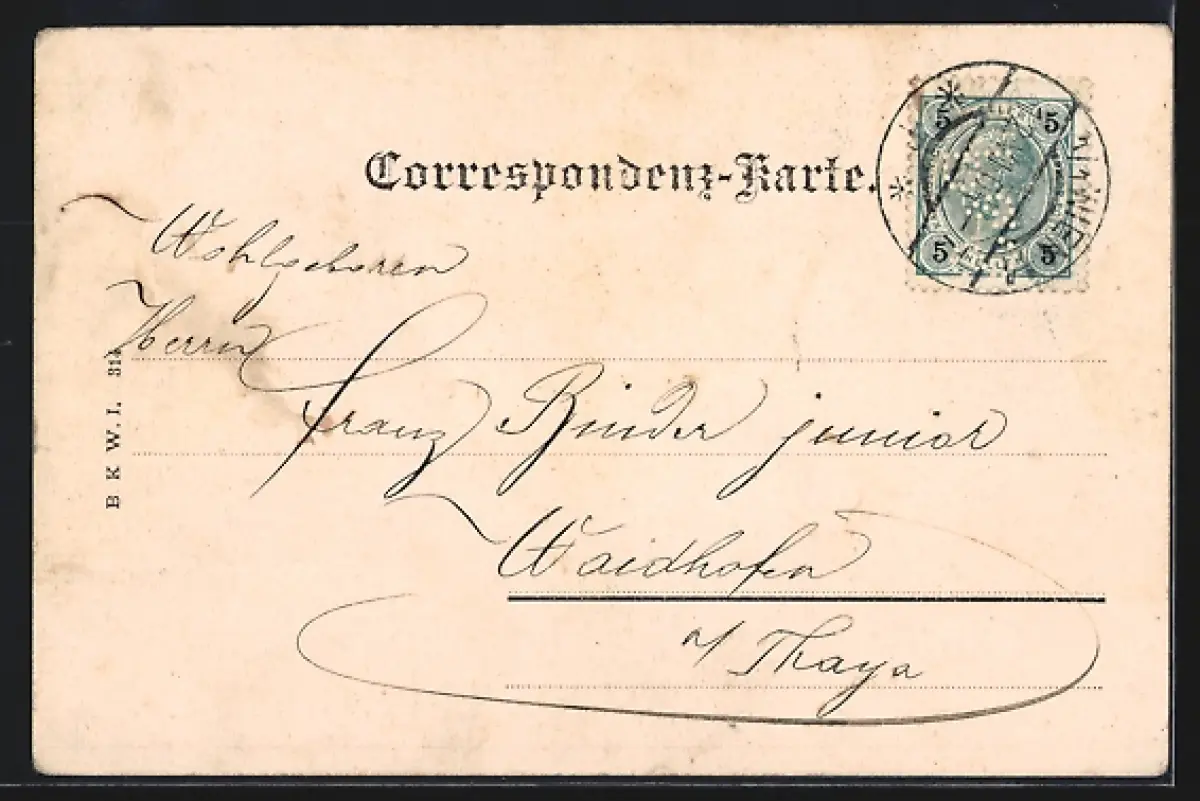 Correspondenz-Karte.
5 5
5 5
WIEN
Wohlgeboren
Herrn
Franz Binder junior
Waidhofen
a/ Thaya
B K W. I. 314